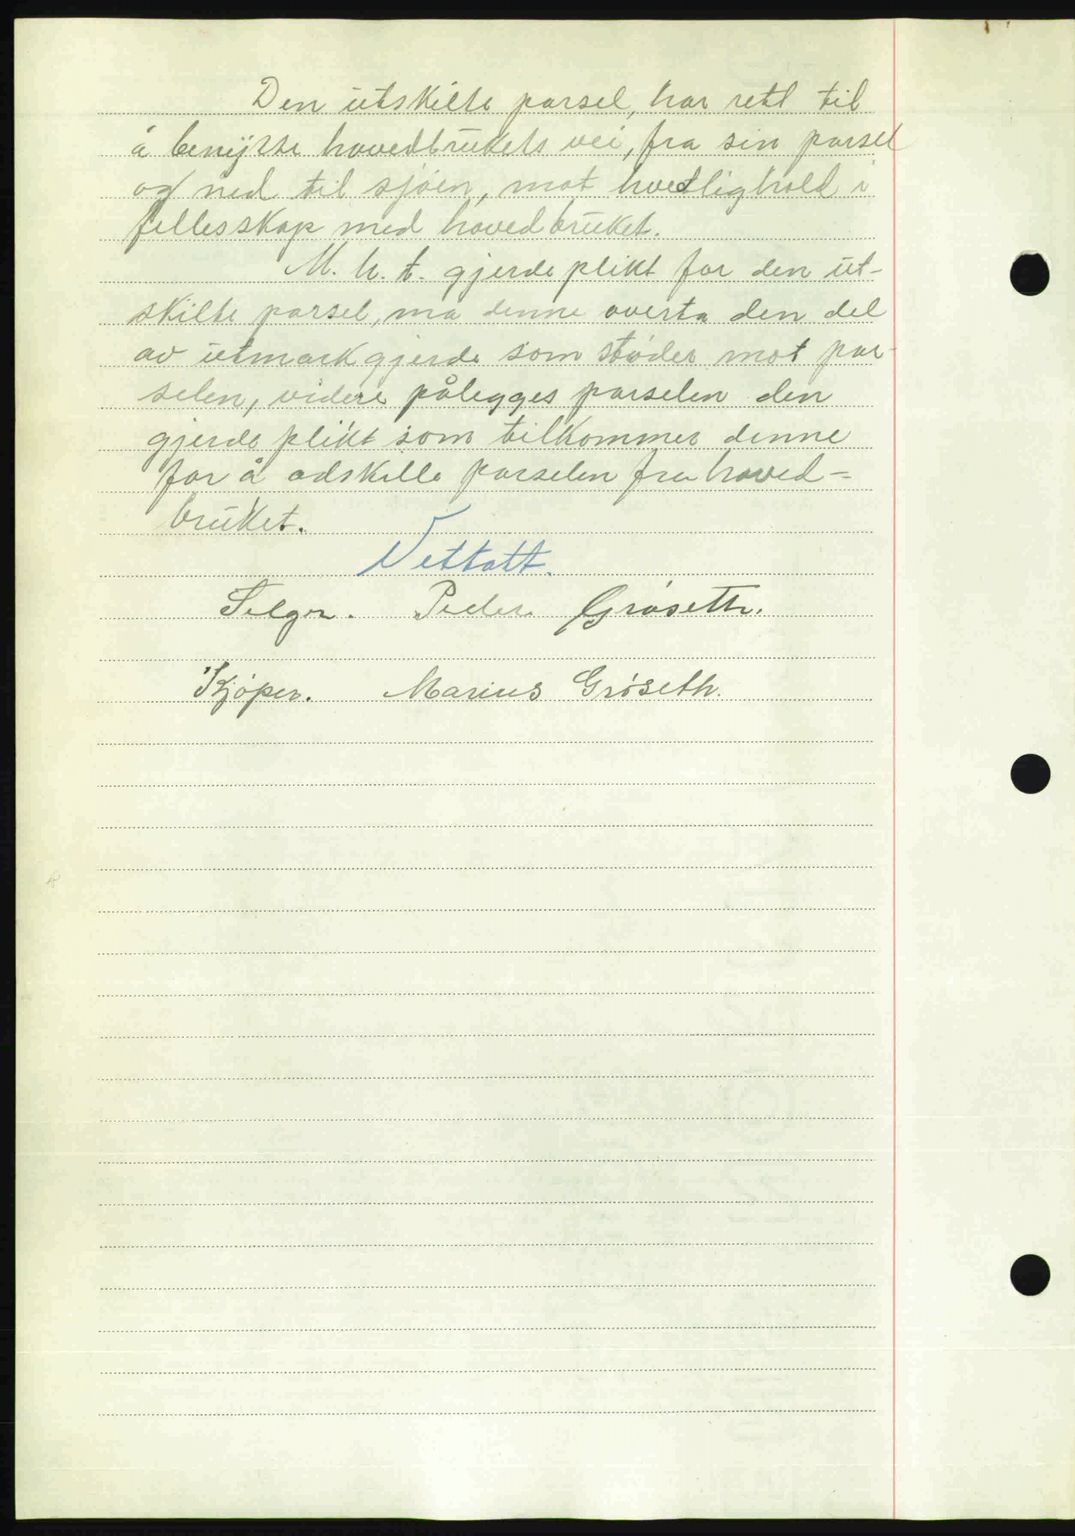 Den utskilte parsel, har rett til
å benytte hovedbrukets vei, fra sin parsel
og ned til sjøen, mot hvedlighold i
fellesskap med hovedbruket.
M. h. t. gjerdeplikt for den ut-
skilte parsel, må denne overta den del
av utmarkgjerde som støder mot par-
selen, videre pålegges parselen den
gjerde plikt som tilkommer denne
for å adskille parselen fra hoved-
bruket.
Vettatt.
Selger. Peder Grøseth.
Kjøper. Marius Grøseth.